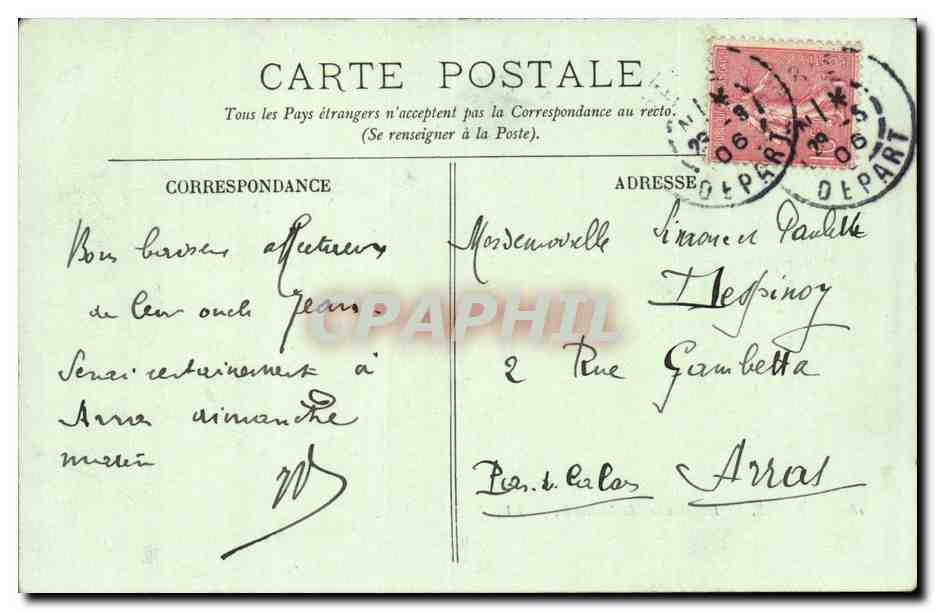 CARTE POSTALE
Tous les Pays étrangers n'acceptent pas la Correspondance au recto.
(Se renseigner à la Poste).
CORRESPONDANCE
Bons baisers affectueux
de leur oncle Jean.
Serai certainement à
Arras dimanche
matin
ADRESSE
Mesdemoiselle Simone et Paulette
Despinoy
2 Rue Gambetta
Pas-de-Calais Arras
06
DEPART
06
DEPART
CPAPHIL